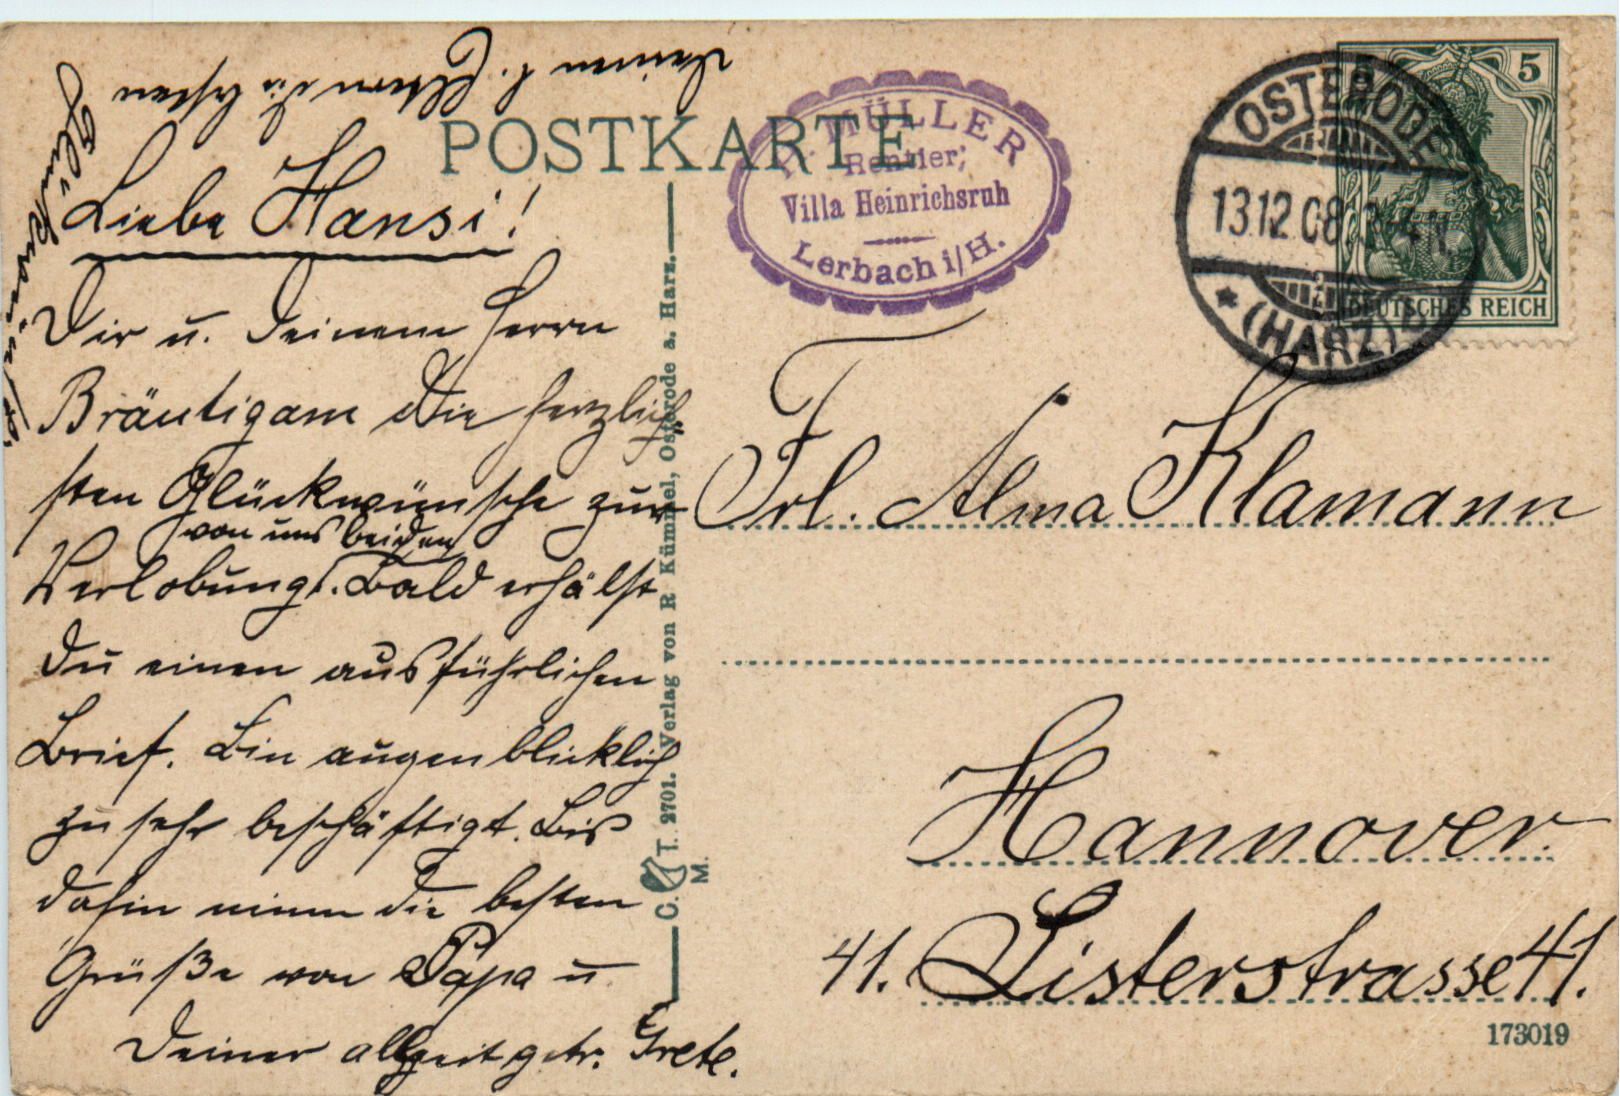 POSTKARTE
Liebe Hansi!
Dir u. Deinem Herrn
Bräutigam die herzlich
sten Glückwünsche zur
von uns beiden
Verlobung. Bald erhälst
Du einen ausführlichen
Brief. Bin augenblicklich
zu sehr beschäftigt. Bis
dahin nimm die besten
Grüße von Papa u
Deiner allzeit getr. Grete.
Deinen l. Eltern die besten
Glückwünsche
C. T. 2701. Verlag von R Kümmel, Osterode a. Harz.
M.
MÜLLER
Rentier,
Villa Heinrichsruh
Lerbach i/H.
OSTERODE
13.12.08
(HARZ)
5
DEUTSCHES REICH
Frl. Alma Klamann
Hannover.
41. Listerstrasse 41.
173019